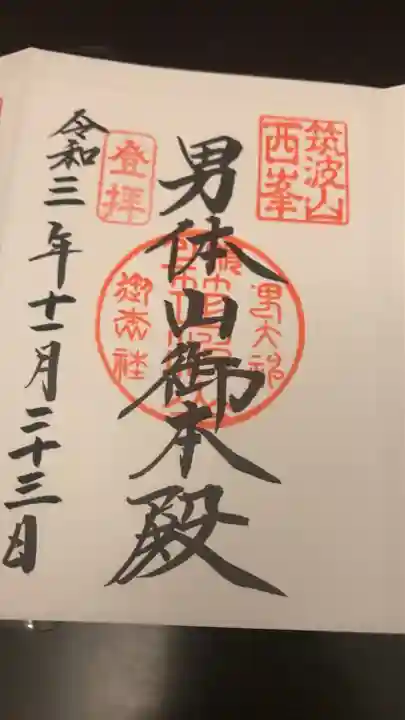 筑波山
西峯
男体山御本殿
登拝
令和三年十一月二十三日